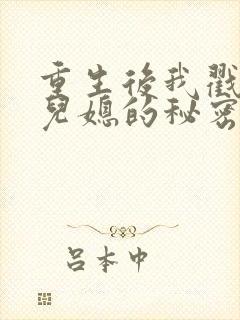 重生後我戳
兒媳的秘密
呂本中